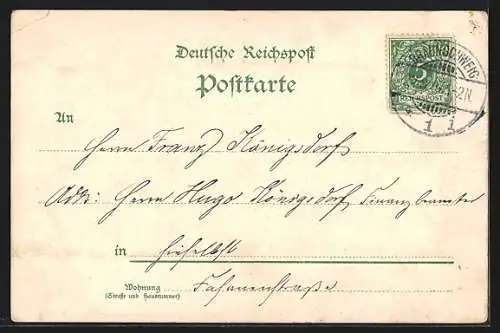 Deutsche Reichspost
Postkarte
BRAUNSCHWEIG
5
REICHSPOST
-2N.
1 i
An
Herrn Franz Königsdorf
Adr: Herrn Hugo Königsdorf Finanzbeamter
in hieselbst
Wohnung
(Straße und Hausnummer)
Fasanenstraße